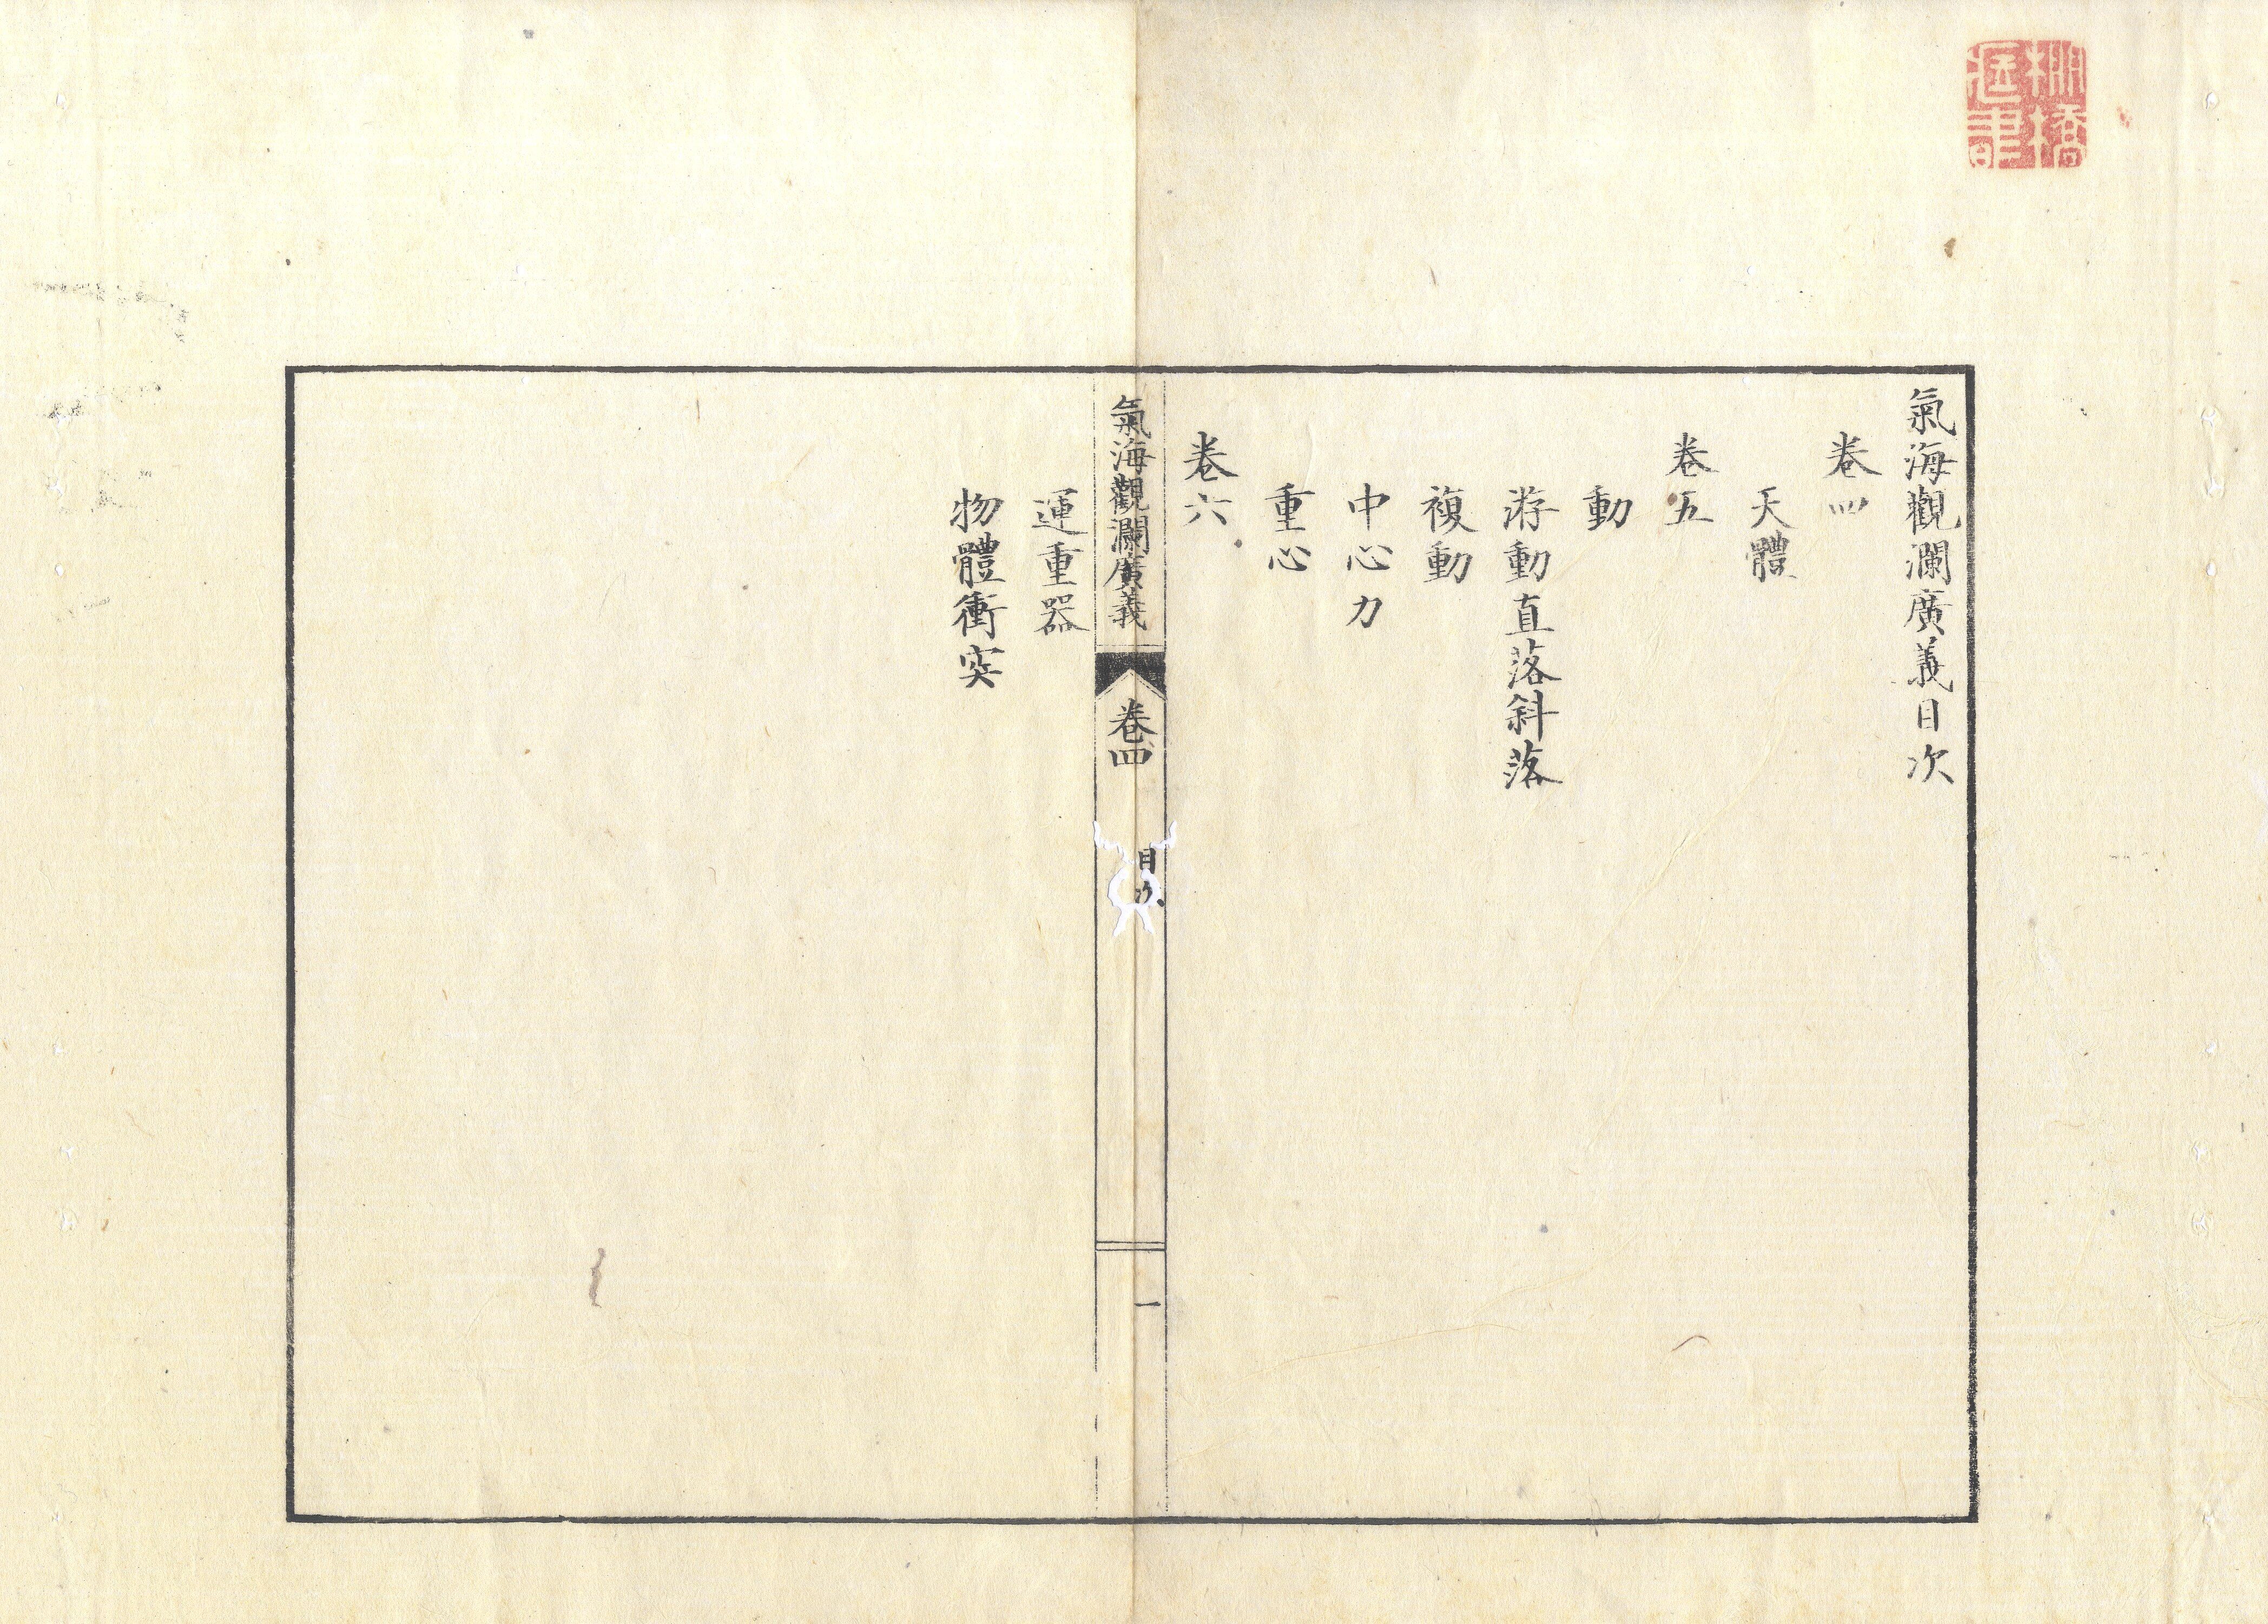 氣海觀瀾廣義目次
卷四
天體
卷五
動
游動直落斜落
複動
中心力
重心
卷六
氣海觀瀾廣義
卷四
目次
一
運重器
物體衝突